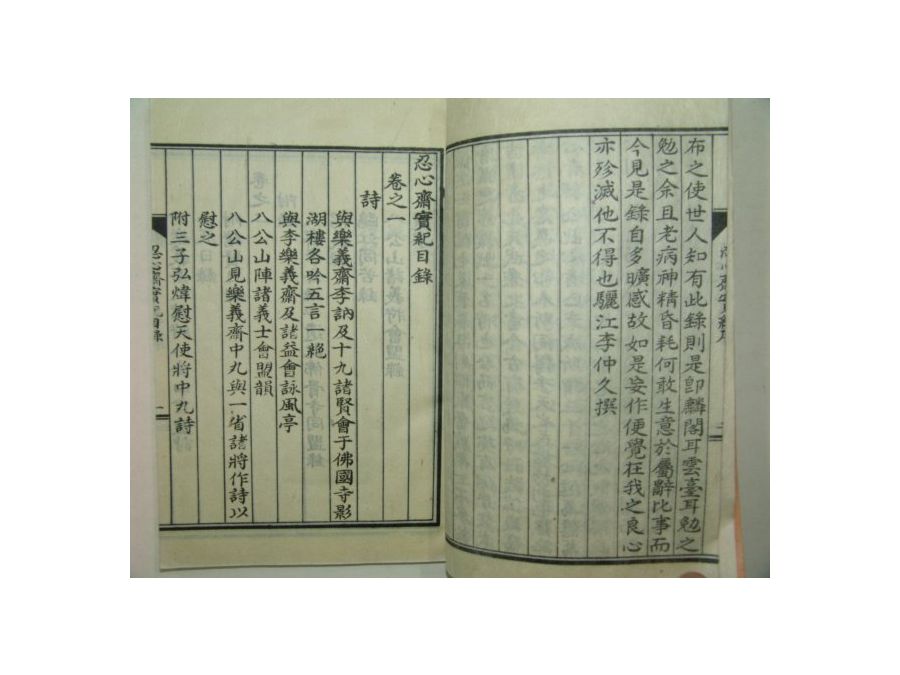 布之使世人知有此錄則是卽麟閣耳雲臺耳勉之
勉之余且老病神精昏耗何敢生意於屬辭比事而
今見是錄自多曠感故如是妄作便覺在我之良心
亦殄滅他不得也驪江李仲久撰
忍心齋實紀目錄
卷之一
詩
與樂義齋李訥及十九諸賢會于佛國寺影
湖樓各吟五言一絕
與李樂義齋及諸益會詠風亭
八公山陣諸義士會盟韻
八公山見樂義齋中丸與一省諸將作詩以
慰之
附三子弘煒慰天使將中丸詩
忍心齋實紀目錄
一